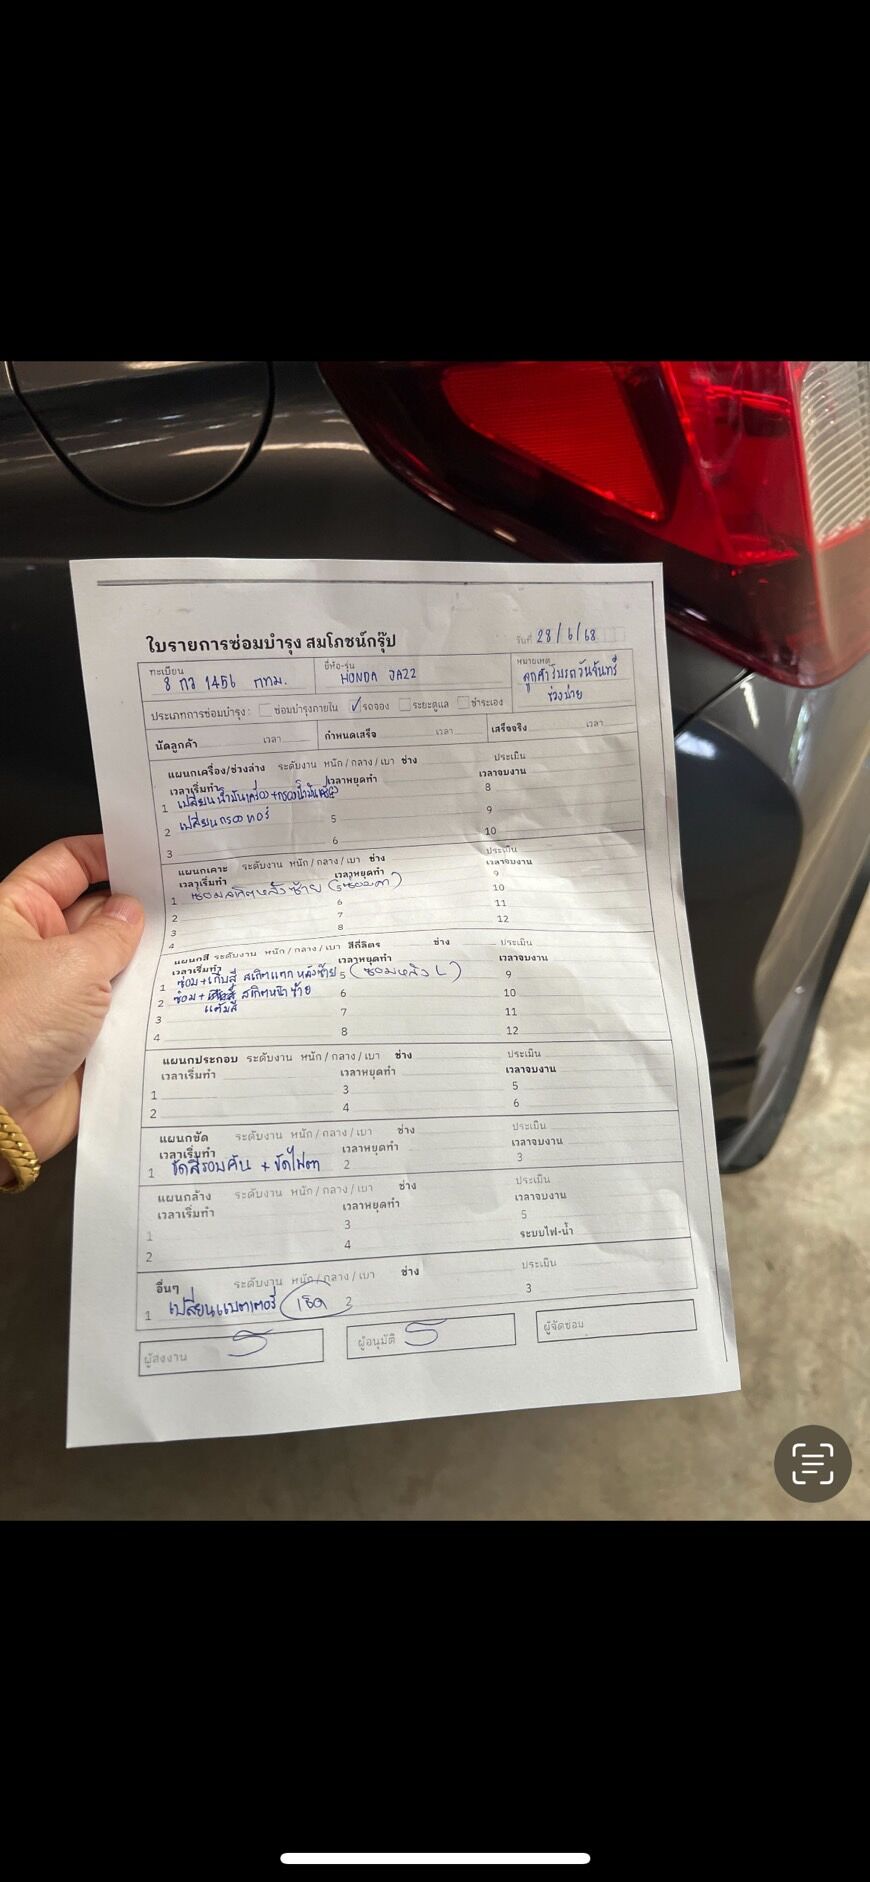 ใบรายการซ่อมบำรุง สมโภชน์กรุ๊ป
วันที่ 28/6/68
ทะเบียน
8 กว 1456 กทม.
ยี่ห้อ-รุ่น
HONDA JAZZ
หมายเหตุ
ลูกค้ารับรถวันจันทร์
ช่วงบ่าย
ประเภทการซ่อมบำรุง : ซ่อมบำรุงภายใน ✓ รถจอง ระยะดูแล ชำระเอง
นัดลูกค้า เวลา กำหนดเสร็จ เวลา เสร็จจริง เวลา
แผนกเครื่อง/ช่วงล่าง ระดับงาน หนัก / กลาง / เบา ช่าง ประเมิน
เวลาเริ่มทำ เวลาหยุดทำ เวลาจบงาน
1 เปลี่ยนน้ำมันเครื่อง+กรองน้ำมันเครื่อง 8
2 เปลี่ยนกรอง 5 9
3 6 10
แผนกเคาะ ระดับงาน หนัก / กลาง / เบา ช่าง ประเมิน
เวลาเริ่มทำ เวลาหยุดทำ เวลาจบงาน
1 ซ่อมสเกิตหลังซ้าย 9
2 6 10
3 7 11
4 8 12
แผนกสี ระดับงาน หนัก / กลาง / เบา สีกี่ลิตร ช่าง ประเมิน
เวลาเริ่มทำ เวลาหยุดทำ เวลาจบงาน
1 ซ่อม+เก็บสี สเกิตแตก หลังซ้าย 5 (ซ่อมหลัง L) 9
2 ซ่อม+ สเกิตหน้าซ้าย 6 10
แต้มสี
3 7 11
4 8 12
แผนกประกอบ ระดับงาน หนัก / กลาง / เบา ช่าง ประเมิน
เวลาเริ่มทำ เวลาหยุดทำ เวลาจบงาน
1 3 5
2 4 6
แผนกขัด ระดับงาน หนัก / กลาง / เบา ช่าง ประเมิน
เวลาเริ่มทำ เวลาหยุดทำ เวลาจบงาน
1 ขัดสีรอบคัน + ขัดไฟตา 2 3
แผนกล้าง ระดับงาน หนัก / กลาง / เบา ช่าง ประเมิน
เวลาเริ่มทำ เวลาหยุดทำ เวลาจบงาน
1 3 5
2 4 ระบบไฟ-น้ำ
อื่นๆ ระดับงาน หนัก / กลาง / เบา ช่าง ประเมิน
1 เปลี่ยนแบตเตอรี่ (เช็ค) 2 3
ผู้สั่งงาน ผู้อนุมัติ ผู้จัดซ่อม